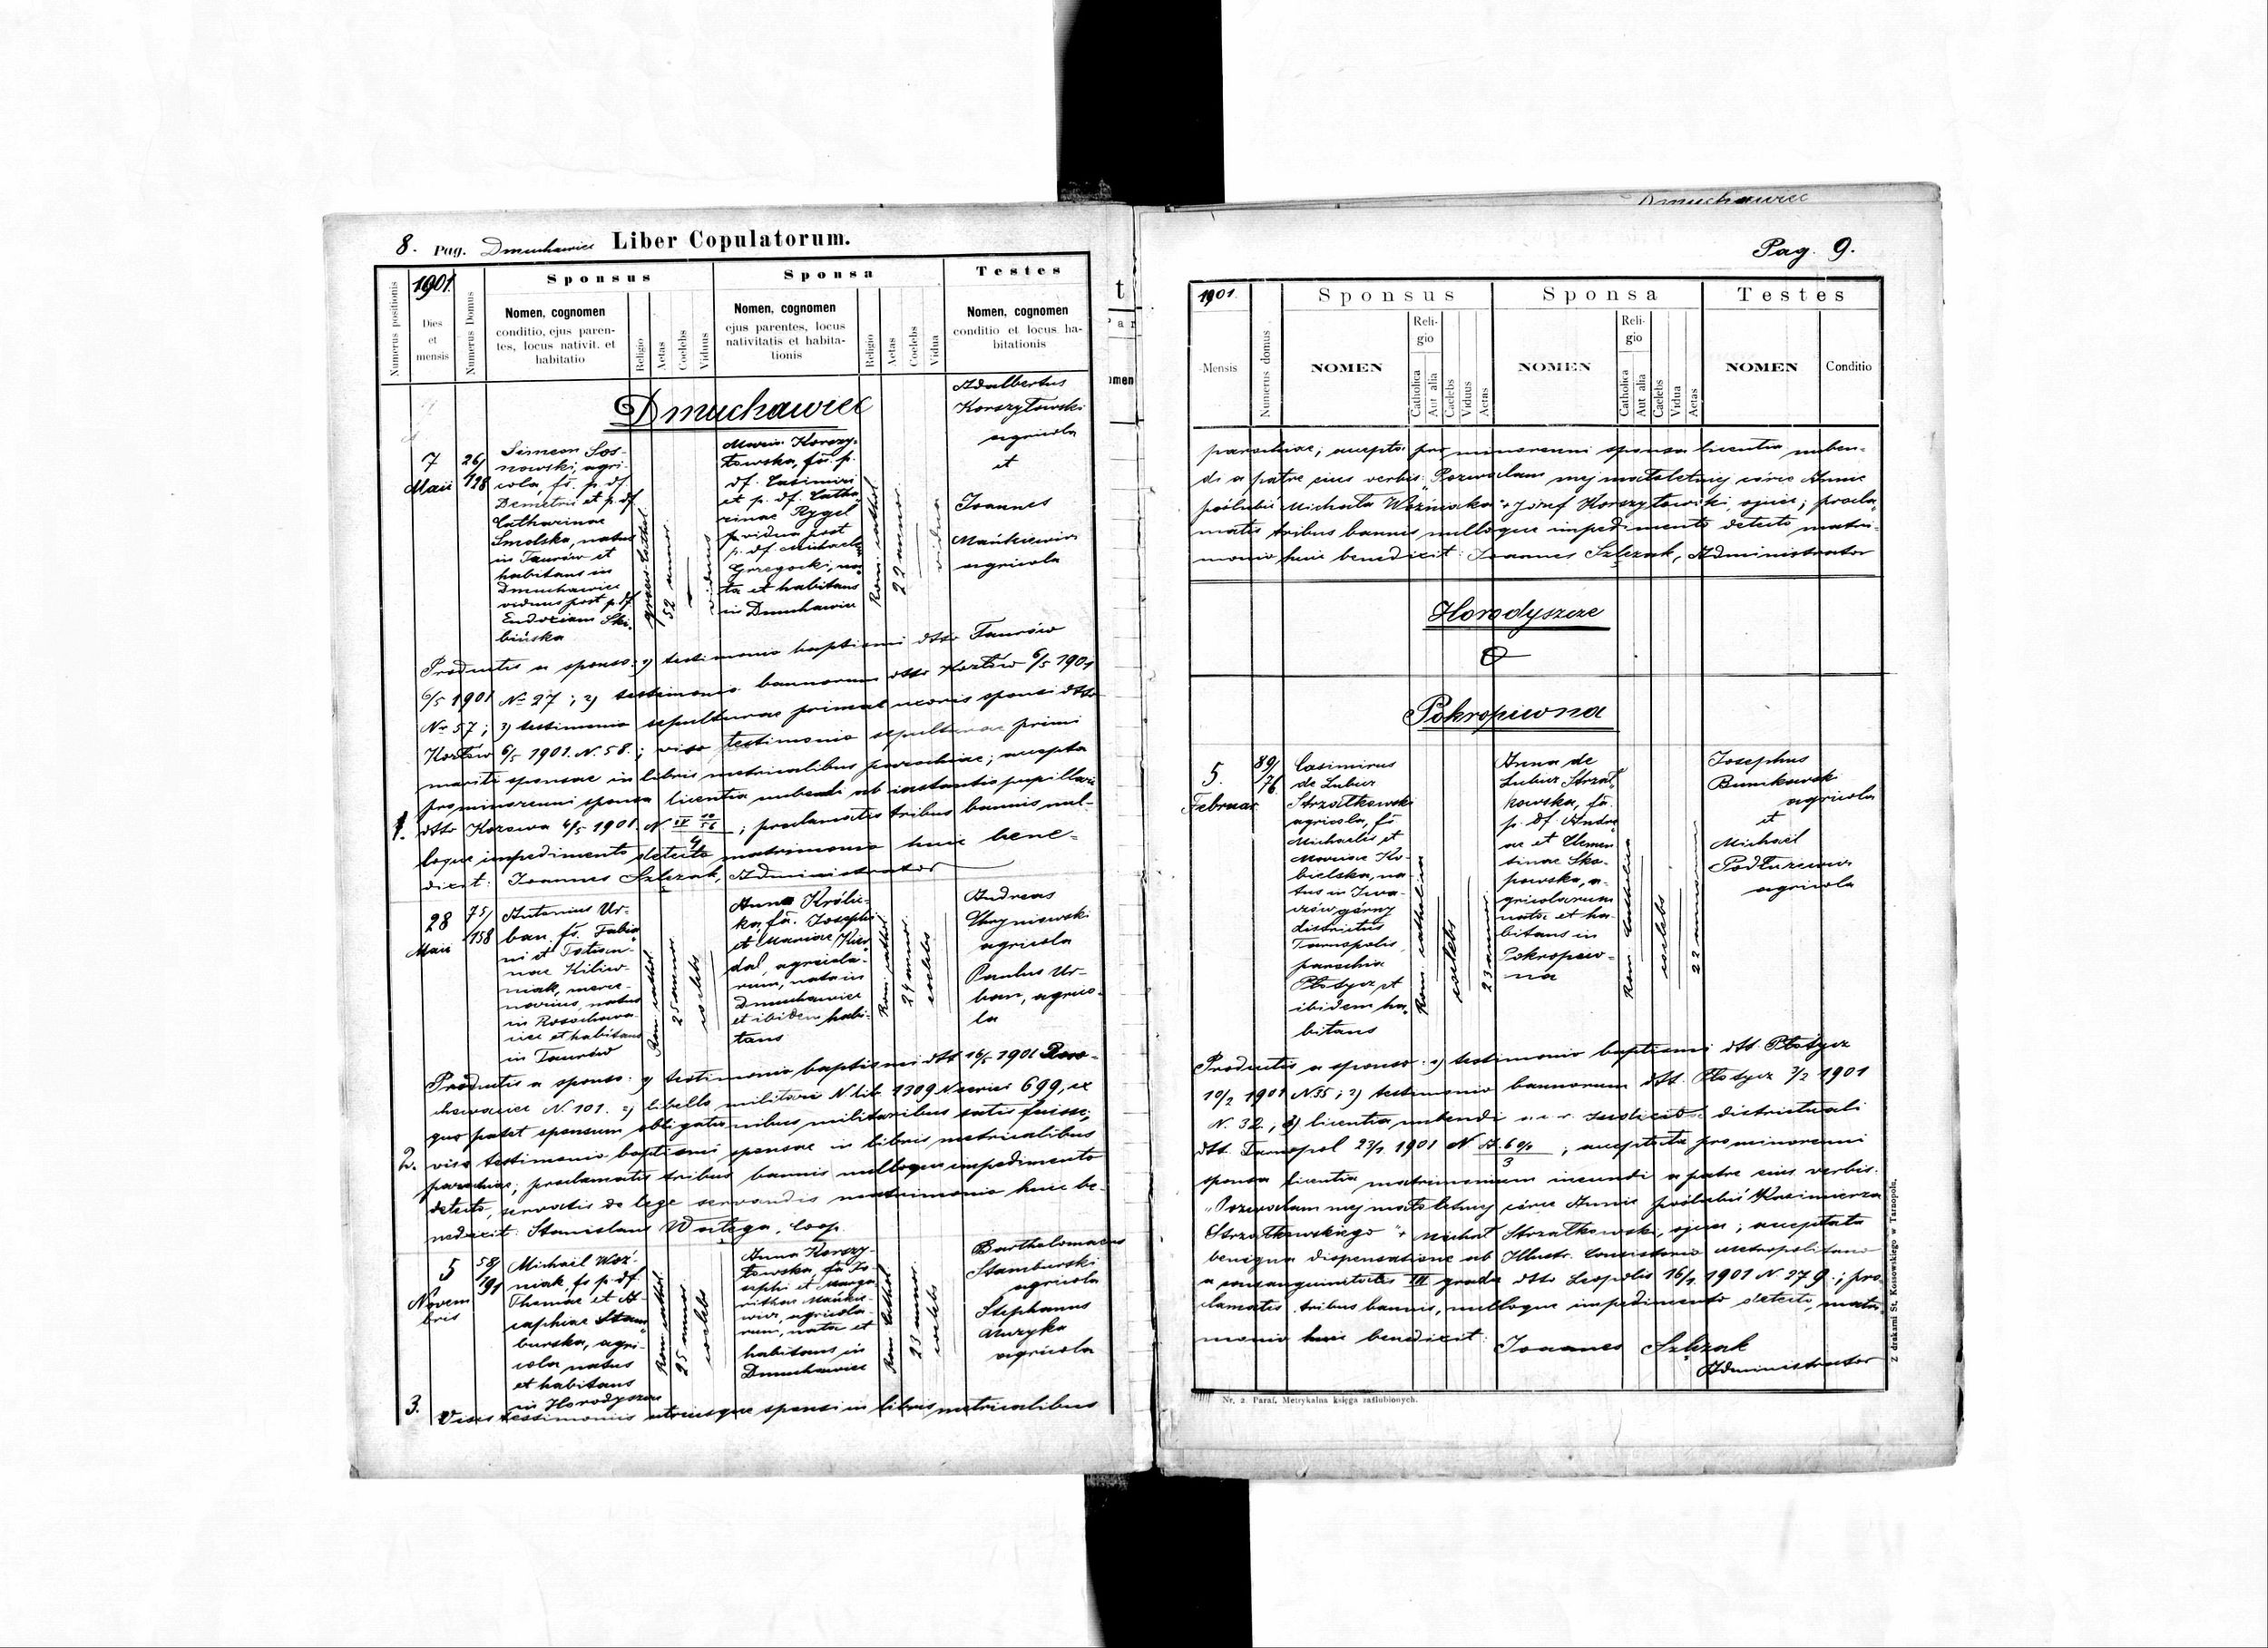 8. Pag. Dmuchawiec Liber Copulatorum.
Numerus positionis
1901.
Dies
et
mensis
Numerus Domus
Sponsus
Nomen, cognomen
conditio, ejus paren-
tes, locus nativit. et
habitatio
Religio
Aetas
Coelebs
Viduus
Sponsa
Nomen, cognomen
ejus parentes, locus
nativitatis et habita-
tionis
Religio
Aetas
Coelebs
Vidua
Testes
Nomen, cognomen
conditio et locus ha-
bitationis
Dmuchawiec
1.
7
Maii
26/
128
Simeon Sos-
nowski, agri-
cola, fs. p. df.
Demetrii et p. df.
Catharinae
Smolska, natus
in Taurów et
habitans in
Dmuchawiec
viduus post p. df.
Eudoxiam Ski-
bińska
graeco cathol.
52 annor.
viduus
Maria Korszy-
łowska, fa. p.
df. Casimiri
et p. df. Catha-
rinae Rygel
vidua post
p. df. Michaele
Grzegocki, na-
ta et habitans
in Dmuchawiec
Rom. cathol.
22 annor.
vidua
Adalbertus
Korszyłowski
agricola
et
Joannes
Mańkiewicz
agricola
Productis a sponso: 1) testimonio baptismi dtto Taurów
6/5 1901 No 27; 2) testimonio bannorum dtto Kozłów 6/5 1901
Nr 57; 3) testimonio sepulturae primae uxoris sponsi dtto
Kozłów 6/5 1901. N. 58.; viso testimonio sepulturae primi
mariti sponsae in libris metricalibus parochiae; accepta
pro minorenni sponsa licentia nubendi ab instantia pupillari
dtto Kozowa 4/5 1901. N. IV 10/56 4; proclamatis tribus bannis nul-
loque impedimento detecto matrimonio huic bene-
dicit: Joannes Szlęzak, Administrator
2.
28
Maii
75/
158
Antonius Ur-
ban, fs. Fabia-
ni et Tatian-
nae Kiliw-
niak, merce-
narius, natus
in Rosochowa-
ciec et habitans
in Taurów
Rom. cathol.
25 annor.
coelebs
Anna Królic-
ka, fa. Josephi
et Mariae Kier-
dal, agricola-
rum, nata in
Dmuchawiec
et ibidem habi-
tans
Rom. cathol.
24 annor.
coelebs
Andreas
Chryniewski
agricola
Paulus Ur-
ban, agrico-
la
Productis a sponso: 1) testimonio baptismi dtt 16/5 1901 Roso-
chowaciec N. 101. 2) libello militari N lib. 1309 N seriei 699, ex
quo patet sponsum obligationibus militaribus satis fuisse;
viso testimonio baptismi sponsae in libris metricalibus
parochiae; proclamatis tribus bannis nulloque impedimento
detecto, servatis de lege servandis matrimonio huic be-
nedicit: Stanislaus Wartęga, Coop.
3.
5
Novem
bris
58/
191
Michael Woź-
niak fs p. df.
Thomae et A-
caphiae Stam-
burska, agri-
cola natus
et habitans
in Horodyszcze
Rom. cathol.
25 annor.
coelebs
Anna Korszy-
łowska, fa Jo-
sephi et Marga-
rithae Mańkie-
wicz, agricola-
rum, nata et
habitans in
Dmuchawiec
Rom. cathol.
23 annor.
coelebs
Bartholomaeus
Stamburski
agricola
Stephanus
Muzyka
agricola
Visis testimoniis utriusque sponsi in libris metricalibus
Dmuchawiec
Pag. 9.
1901.
Mensis
Numerus domus
Sponsus
NOMEN
Reli-
gio
Catholica
Aut alia
Caelebs
Viduus
Aetas
Sponsa
NOMEN
Reli-
gio
Catholica
Aut alia
Caelebs
Vidua
Aetas
Testes
NOMEN
Conditio
parochiae; accepta pro minorenni sponsa licentia nuben-
di a patre eius verbis: „Pozwalam mej małoletniej córce Annie
poślubić Michała Woźniaka" + Józef Korszyłowski, ojciec; procla-
matis tribus bannis nulloque impedimento detecto matri-
monio huic benedicit: Joannes Szlęzak, Administrator
Horodyszcze
Pokropiwna
5.
Februar.
89/
76
Casimirus
de Lubicz
Strzałkowski
agricola, fs
Michaelis et
Mariae Ko-
bielska, na-
tus in Iwa-
czów górny
districtus
Tarnopolis,
parochia
Płotycz et
ibidem ha-
bitans
Rom. catholica
coelebs
23 annor.
Anna de
Lubicz Strzał-
kowska, fa.
p. df. Andre-
ae et Clemen-
tinae Ska-
powska, a-
gricolarum
nata et ha-
bitans in
Pokropiw-
na
Rom. catholica
coelebs
22 annor.
Josephus
Bunikowski
agricola
et
Michael
Podłuzewicz
agricola
Productis a sponso: 1) testimonio baptismi dtt. Płotycz
10/2 1901 N 35; 2) testimonio bannorum dtt. Płotycz 3/2 1901
N. 32., 3) licentia nubendi a c. r. Judicio districtuali
dtt. Tarnopol 23/1 1901 N A. 60/3; acceptata pro minorenni
sponsa licentia matrimonium ineundi a patre eius verbis:
„Pozwalam mej małoletniej córce Annie poślubić Kazimierza
Strzałkowskiego" + Michał Strzałkowski, ojciec; acceptata
benigna dispensatione ab Illustr. Consistorio Metropolitano
a consanguinitatis III gradu dtto Leopolis 16/1. 1901 N 279.; pro-
clamatis tribus bannis, nulloque impedimento detecto, matri-
monio huic benedicit: Joannes Szlęzak
Administrator
Nr. 2. Paraf. Metrykalna księga zaślubionych.
Z drukarni St. Kossowskiego w Tarnopolu.